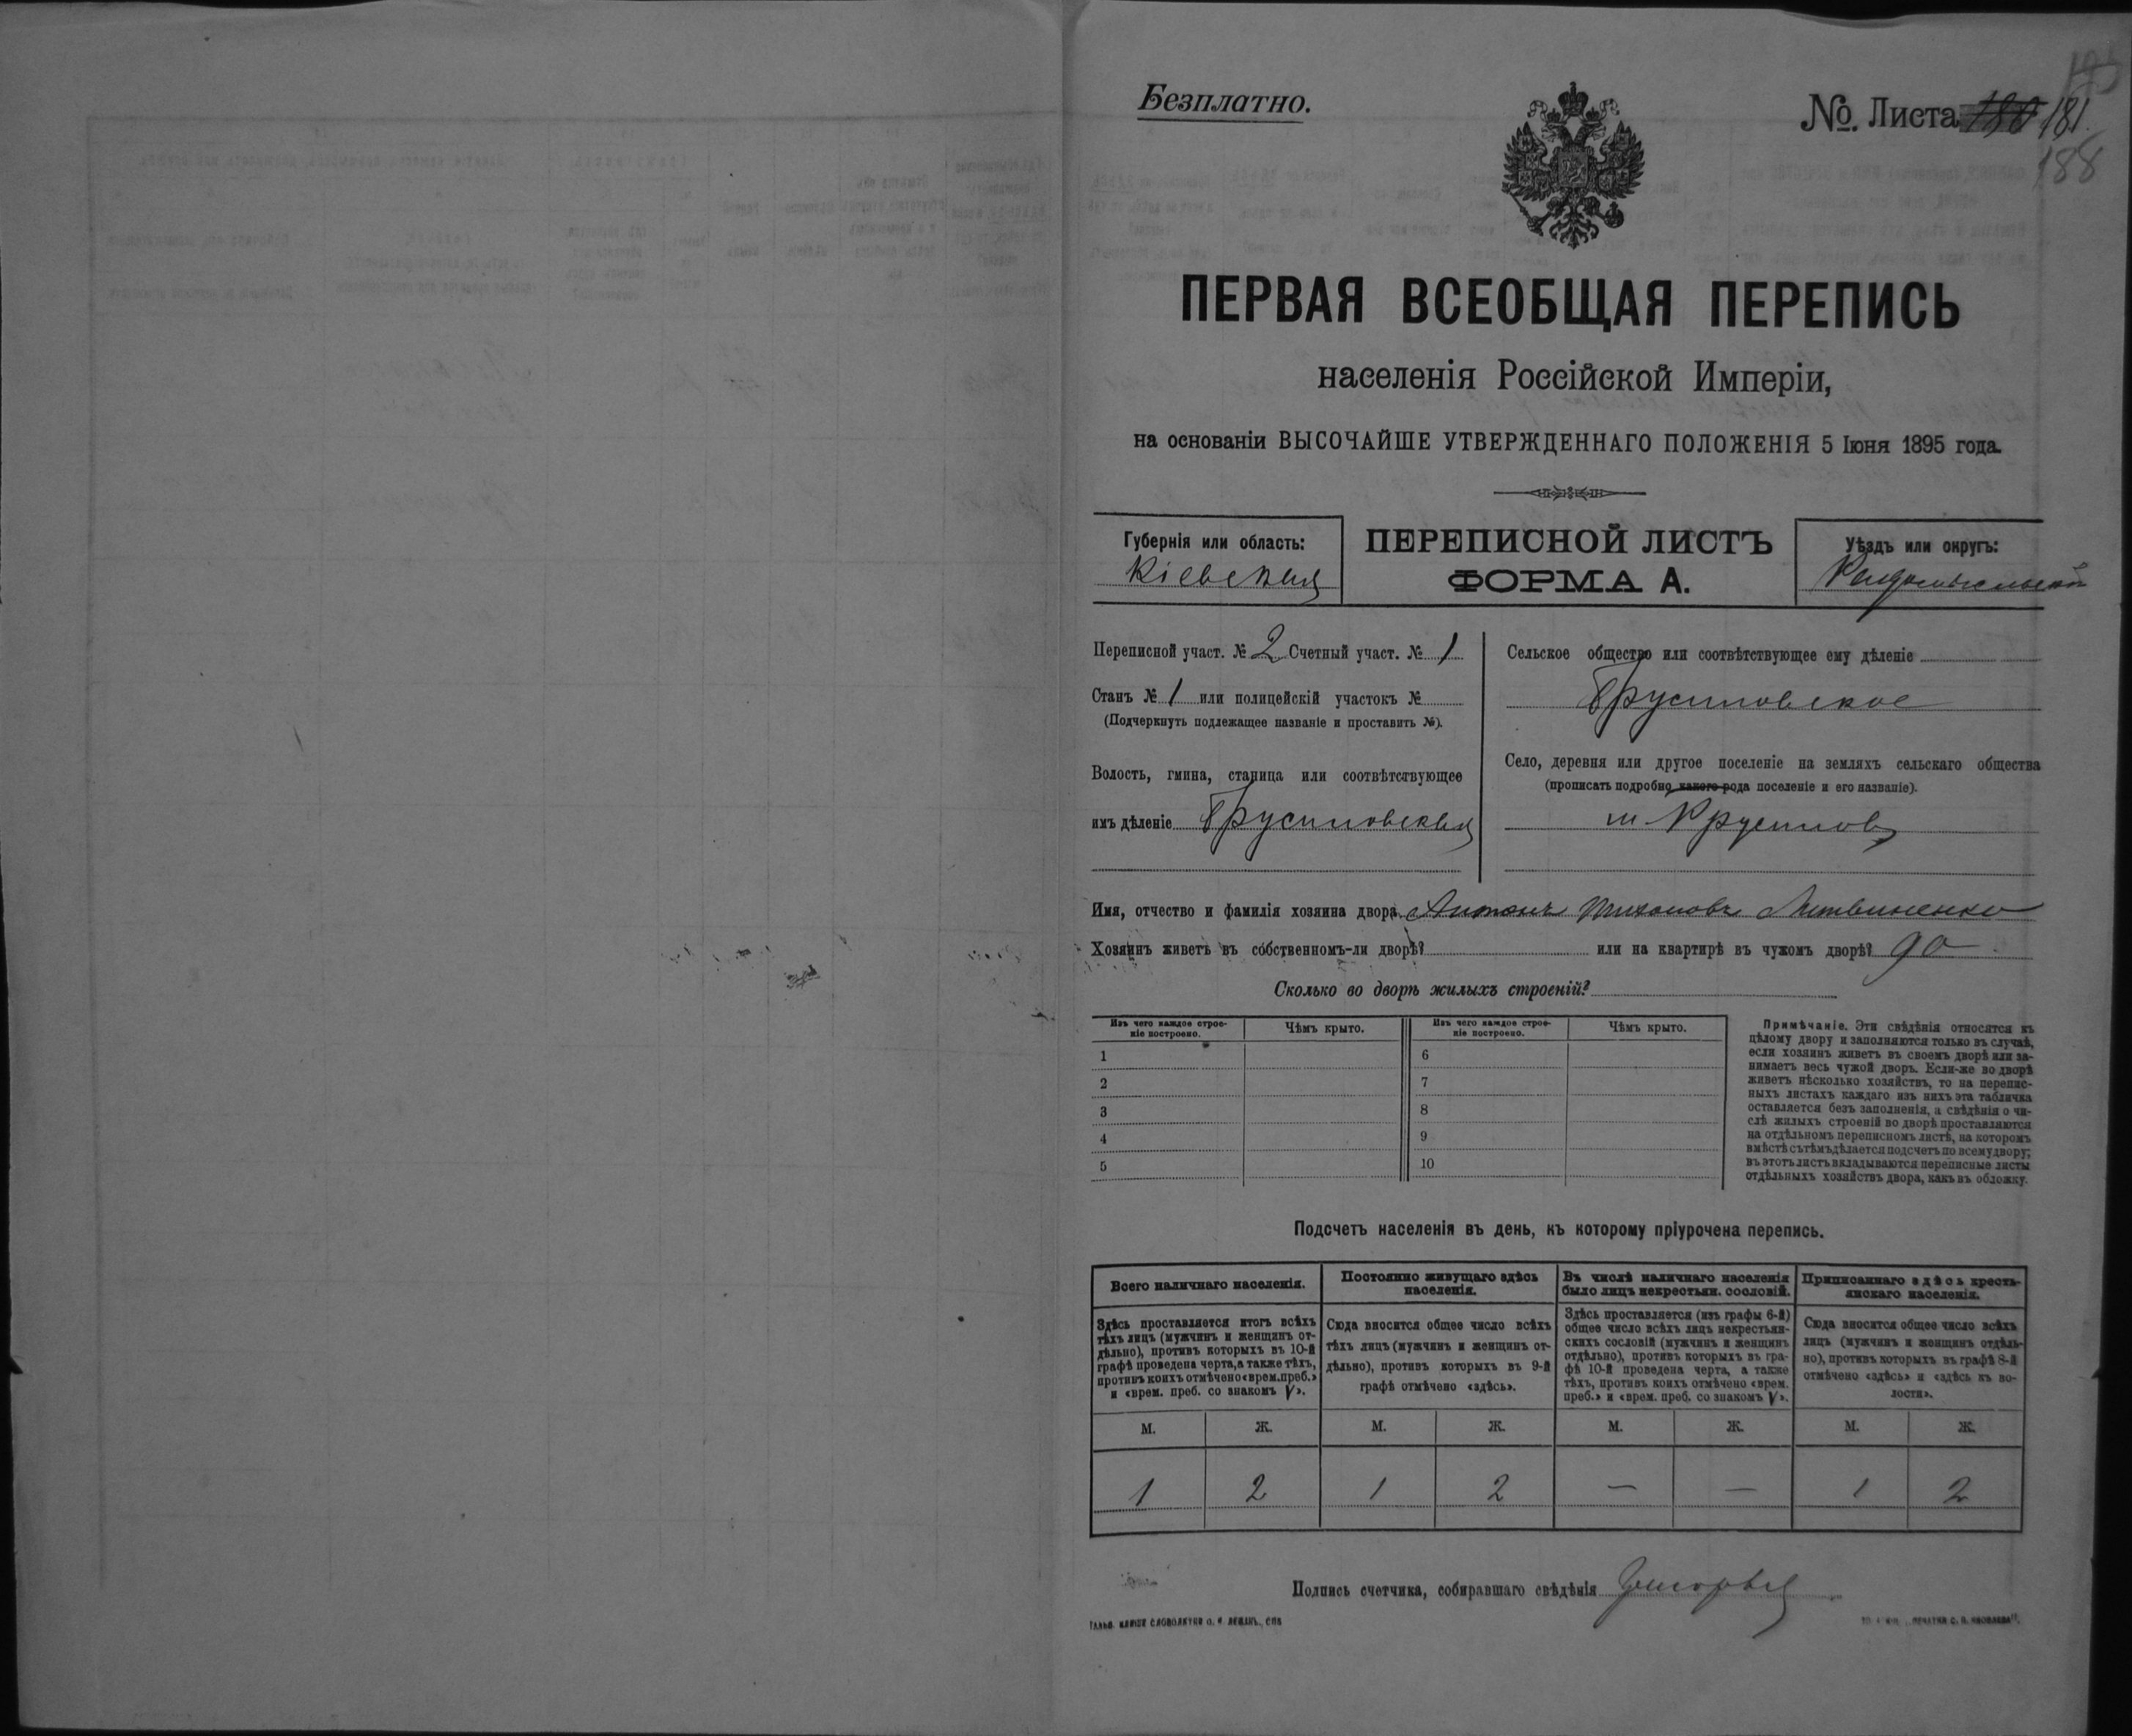 Безплатно.
№ Листа 180 181.
188
ПЕРВАЯ ВСЕОБЩАЯ ПЕРЕПИСЬ
населенія Россійской Имперіи,
на основаніи ВЫСОЧАЙШЕ УТВЕРЖДЕННАГО ПОЛОЖЕНІЯ 5 Іюня 1895 года.
Губернія или область:
Кіевская
ПЕРЕПИСНОЙ ЛИСТЪ
ФОРМА А.
Уѣздъ или округъ:
Радомысльскій
Переписной участ. № 2 Счетный участ. № 1
Станъ № 1 или полицейскій участокъ №
(Подчеркнуть подлежащее названіе и проставить №).
Волость, гмина, станица или соотвѣтствующее
имъ дѣленіе Брусиловская
Сельское общество или соотвѣтствующее ему дѣленіе
Брусиловское
Село, деревня или другое поселеніе на земляхъ сельскаго общества
(прописать подробно какого рода поселеніе и его названіе).
м Брусилов
Имя, отчество и фамилія хозяина двора Антонъ Тихоновъ Литвиненко
Хозяинъ живетъ въ собственномъ-ли дворѣ? или на квартирѣ въ чужомъ дворѣ? да
Сколько во дворѣ жилыхъ строеній?
Изъ чего каждое строе-
ніе построено.
Чѣмъ крыто.
Изъ чего каждое строе-
ніе построено.
Чѣмъ крыто.
1
2
3
4
5
6
7
8
9
10
Примѣчаніе. Эти свѣдѣнія относятся къ
цѣлому двору и заполняются только въ случаѣ,
если хозяинъ живетъ въ своемъ дворѣ или за-
нимаетъ весь чужой дворъ. Если-же во дворѣ
живетъ нѣсколько хозяйствъ, то на перепис-
ныхъ листахъ каждаго изъ нихъ эта табличка
оставляется безъ заполненія, а свѣдѣнія о чи-
слѣ жилыхъ строеній во дворѣ проставляются
на отдѣльномъ переписномъ листѣ, на которомъ
вмѣстѣ съ тѣмъ дѣлается подсчетъ по всему двору;
въ этотъ листъ вкладываются переписные листы
отдѣльныхъ хозяйствъ двора, какъ въ обложку.
Подсчетъ населенія въ день, къ которому пріурочена перепись.
Всего наличнаго населенія.
Здѣсь проставляется итогъ всѣхъ
тѣхъ лицъ (мужчинъ и женщинъ от-
дѣльно), противъ которыхъ въ 10-й
графѣ проведена черта, а также тѣхъ,
противъ коихъ отмѣчено «врем. преб.»
и «врем. преб. со знакомъ V».
Постоянно живущаго здѣсь
населенія.
Сюда вносится общее число всѣхъ
тѣхъ лицъ (мужчинъ и женщинъ от-
дѣльно), противъ которыхъ въ 9-й
графѣ отмѣчено «здѣсь».
Въ числѣ наличнаго населенія
было лицъ некрестьян. сословій.
Здѣсь проставляется (изъ графы 6-й)
общее число всѣхъ лицъ некрестьян-
скихъ сословій (мужчинъ и женщинъ
отдѣльно), противъ которыхъ въ гра-
фѣ 10-й проведена черта, а также
тѣхъ, противъ коихъ отмѣчено «врем.
преб.» и «врем. преб. со знакомъ V».
Приписаннаго здѣсь кресть-
янскаго населенія.
Сюда вносится общее число всѣхъ
лицъ (мужчинъ и женщинъ отдѣль-
но), противъ которыхъ въ графѣ 8-й
отмѣчено «здѣсь» и «здѣсь въ во-
лости».
М. Ж. М. Ж. М. Ж. М. Ж.
1 2 1 2 — — 1 2
Подпись счетчика, собиравшаго свѣдѣнія